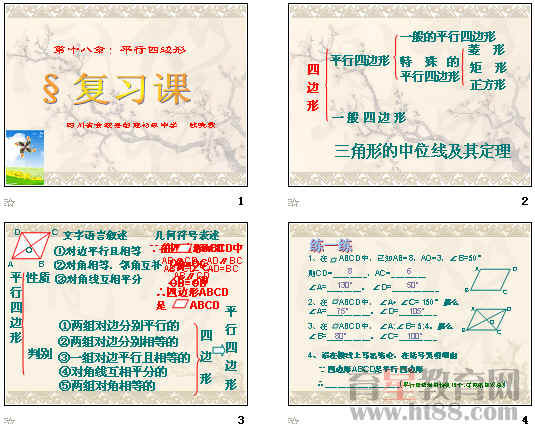 第十八章：平行四边形
§复习课
1
四边形
平行四边形
一般的平行四边形
特殊的
平行四边形
菱 形
矩 形
正方形
一般四边形
三角形的中位线及其定理
2
D C
O
A B
文字语言叙述
几何符号表述
平行四边形
性质
①对边平行且相等
②对角相等，邻角互补
③对角线互相平分
∴四边形ABCD
是 ABCD
判别
①两组对边分别平行的
②两组对边分别相等的
③一组对边平行且相等的
④对角线互相平分的
⑤两组对角相等的
四边形
平行四边形
3
练一练
1、在 ABCD中，已知AB=8，AO=3，∠B=50°
则CD= 8 ，AC= 6
∠A= 130° ，∠D= 50°
2、在 ABCD中，∠A+∠C=150° 那么
∠A= 75° ，∠D= 105°
3、在 ABCD中，∠A:∠B=5:4，那么
∠B= 80° ，∠C= 100°
∵四边形ABCD是平行四边形
∴
4
育星教育网
www.ht88.com